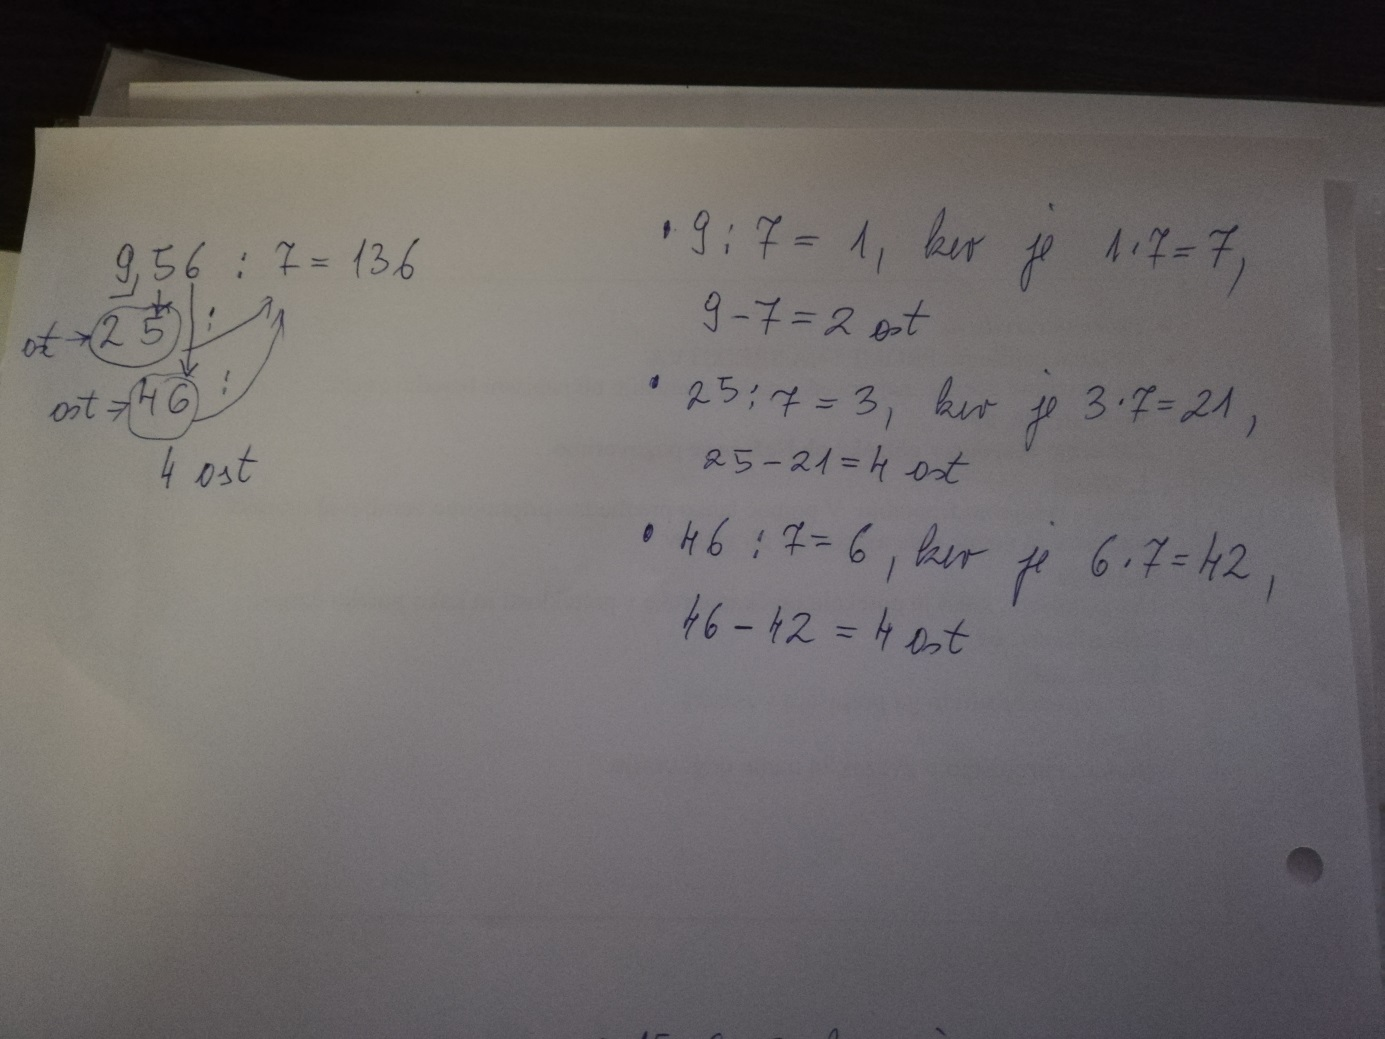 956 : 7 = 136
ost → 25 :
ost → 46 :
4 ost
• 9 : 7 = 1, ker je 1·7=7,
9 - 7 = 2 ost
• 25 : 7 = 3, ker je 3·7=21,
25 - 21 = 4 ost
• 46 : 7 = 6, ker je 6·7=42,
46 - 42 = 4 ost